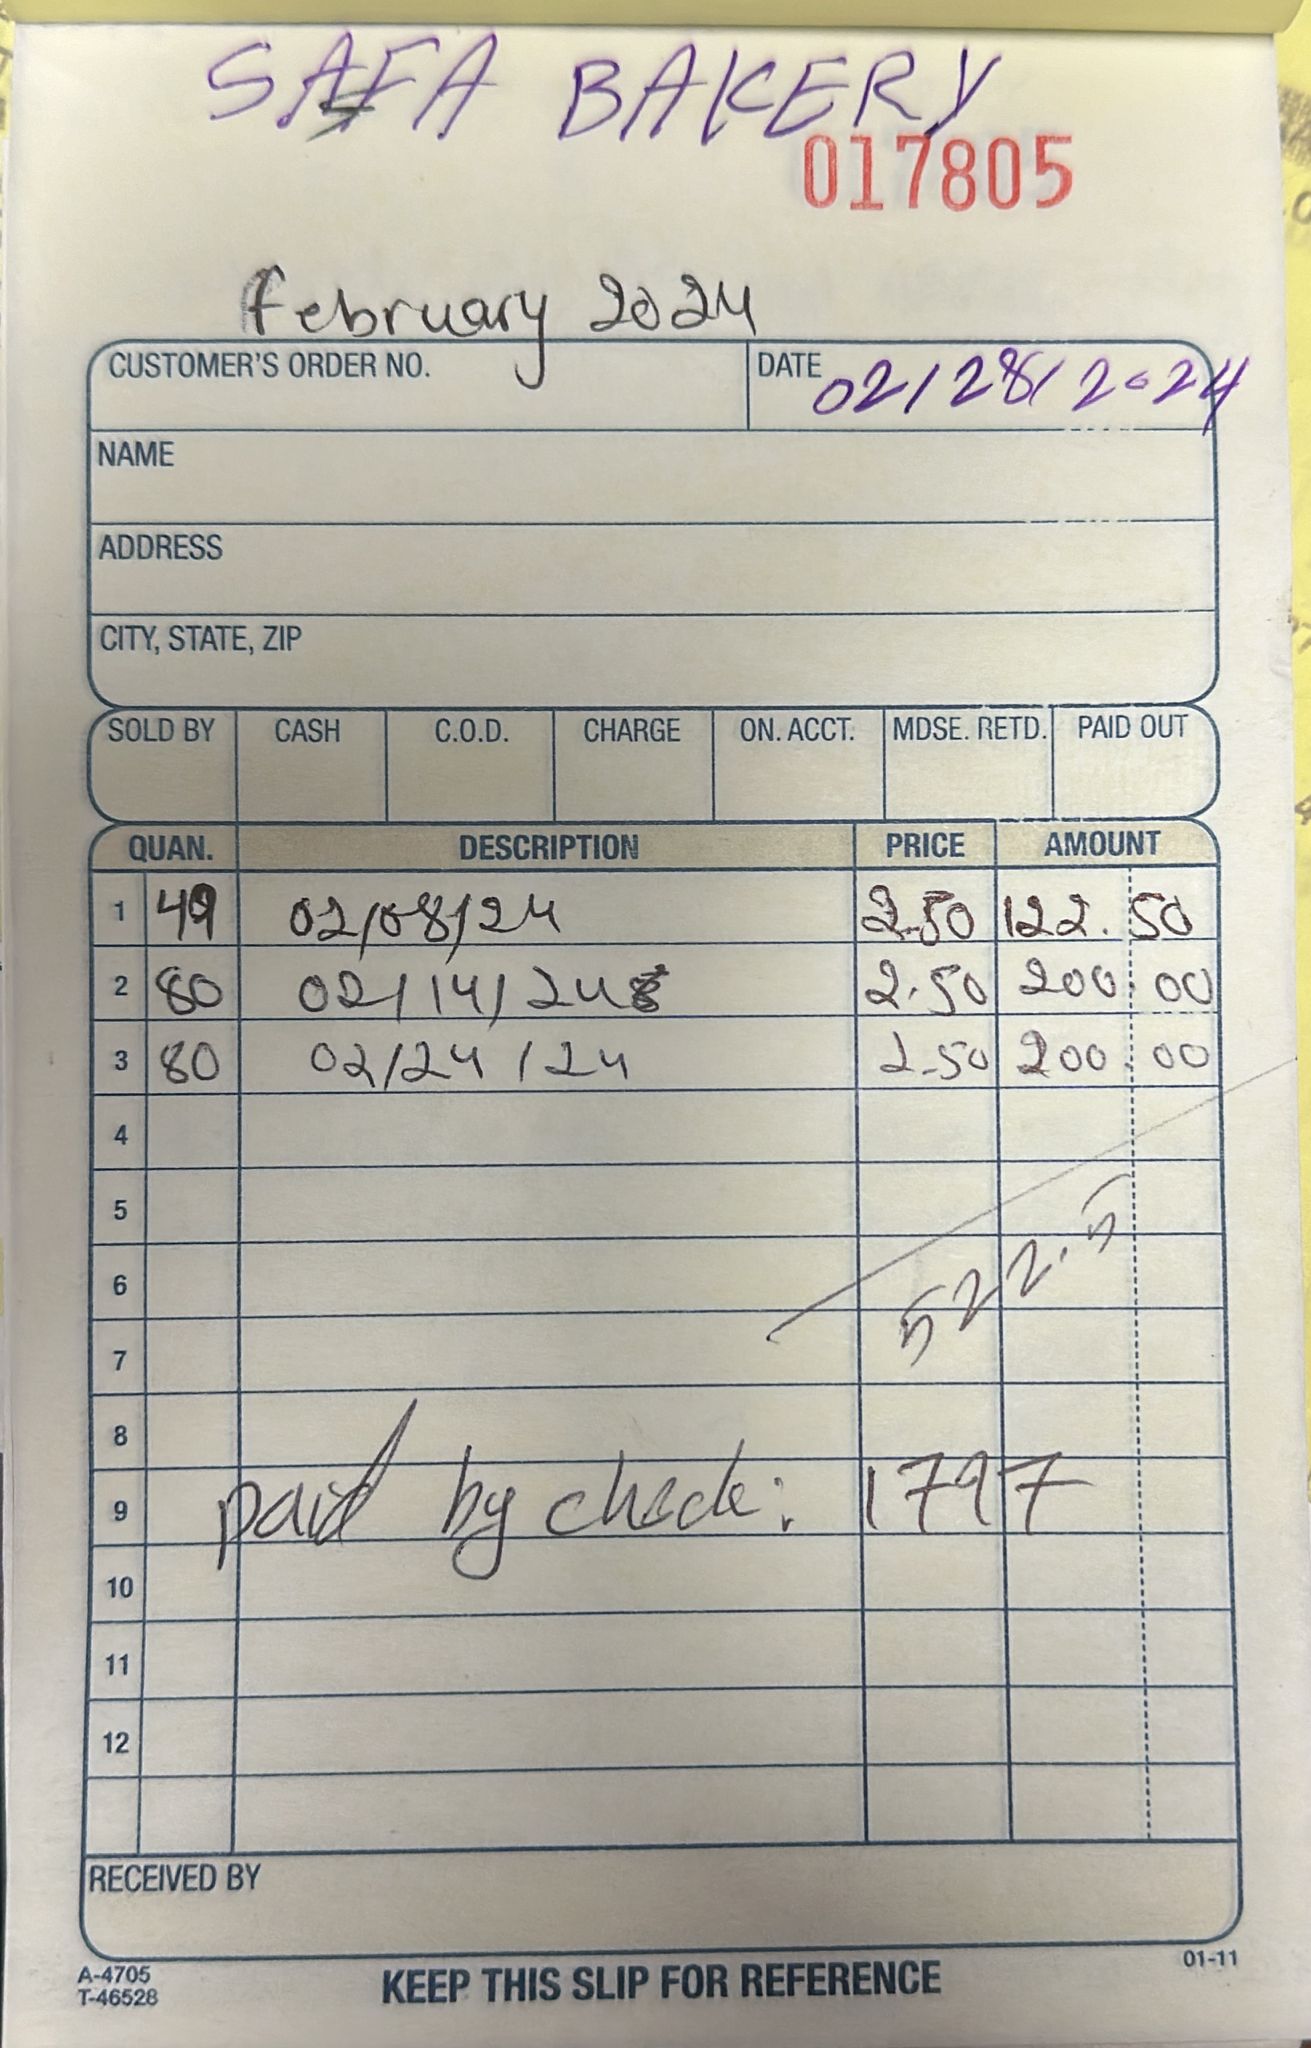 SAFA BAKERY
017805
February 2024
CUSTOMER'S ORDER NO.
DATE 02/28/2024
NAME
ADDRESS
CITY, STATE, ZIP
SOLD BY CASH C.O.D. CHARGE ON. ACCT. MDSE. RETD. PAID OUT
QUAN. DESCRIPTION PRICE AMOUNT
1 49 02/08/24 2.50 122.50
2 80 02/14/24 2.50 200.00
3 80 02/24/24 2.50 200.00
4
5
6
522.5
7
8
9 paid by check: 1797
10
11
12
RECEIVED BY
A-4705
T-46528
KEEP THIS SLIP FOR REFERENCE
01-11